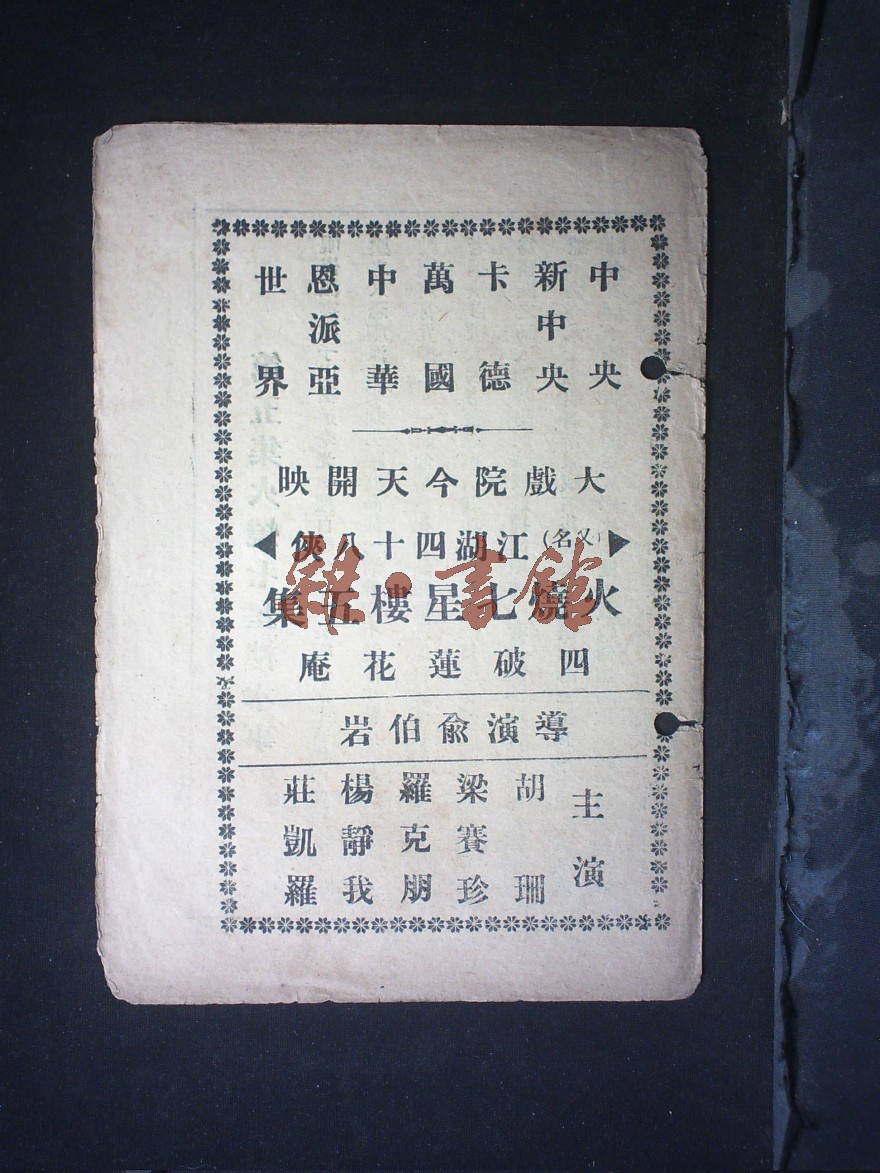 中央
新中央
卡德
萬國
中華
恩派亞
世界
大戲院今天開映
（又名）江湖四十八俠
火燒七星樓五集
四破蓮花庵
導演俞伯岩
主演
胡珊
梁賽珍
羅克朋
楊靜我
莊凱羅
書館